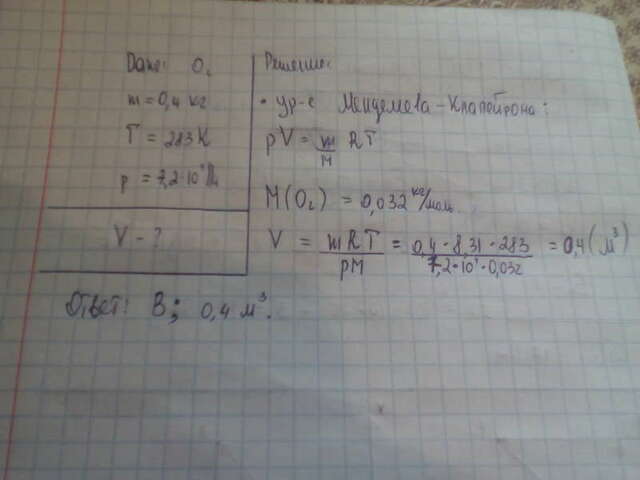 Дано: O₂
m = 0,4 кг
T = 283 К
V - ?
Решение:
• ур-е Менделеева-Клапейрона:
pV = m/M RT
M(O₂) = 0,032 кг/моль
V = mRT/pM = 0,4 · 8,31 · 283 / = 0,4 (м³)
Ответ: В; 0,4 м³.